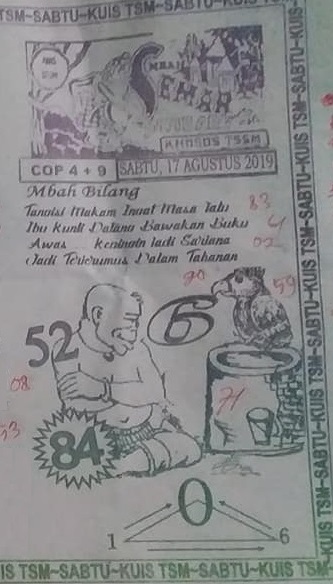 TSM~SABTU~KUIS TSM~SABTU~KUIS TSM~SABTU~KUIS
MBAH
SEMAR
KHUSUS TSSM
COP 4 + 9 SABTU, 17 AGUSTUS 2019
Mbah Bilang
Tangisi Makam Ingat Masa Lalu 83
Ibu Kunti Datang Bawakan Buku 4
Awas Jadi Sarjana 02
Jadi Terjerumus Dalam Tahanan
90
59
6
52
08
71
84
0
1 6
IS TSM~SABTU~KUIS TSM~SABTU~KUIS TSM
KUIS TSM~SABTU~KUIS TSM~SABTU~KUIS TSM~SABTU~KUIS